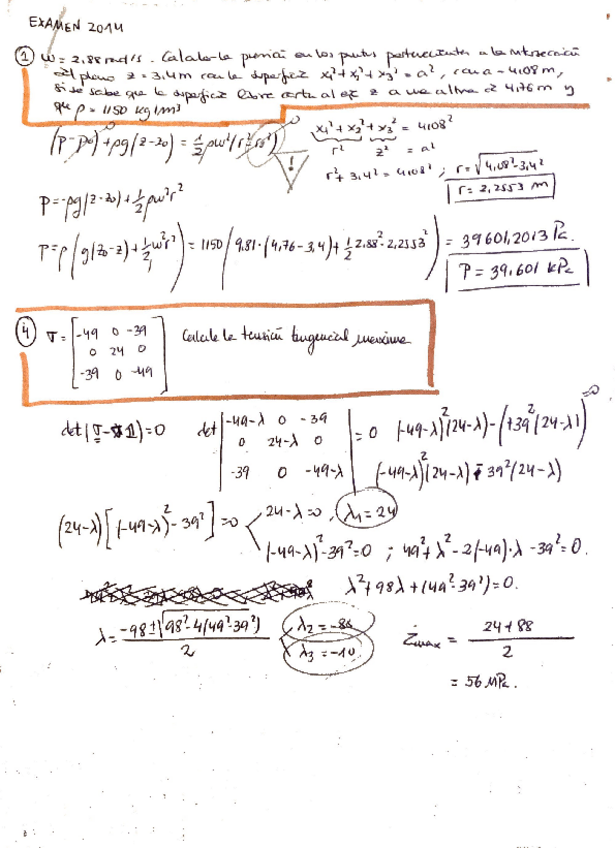 EXAMEN 2014
① ω = 2,88 rad/s. Calcular la presión en los puntos pertenecientes a la intersección
del plano z = 3,4 m con la superficie x₁² + x₂² + x₃² = a², con a = 4,08 m,
si se sabe que la superficie libre corta al eje z a una altura de 4,76 m y
que ρ = 1150 kg/m³
(P - P₀) + ρg(z - z₀) = 1/2 ρω²(r² - r₀²)
0
!
x₁² + x₂² + x₃² = 4,08²
r² z² = a²
r² + 3,4² = 4,08² ; r = √(4,08² - 3,4²)
r = 2,2553 m
P = -ρg(z - z₀) + 1/2 ρω²r²
P = ρ(g(z₀ - z) + 1/2 ω²r²) = 1150(9,81·(4,76 - 3,4) + 1/2 2,88²·2,2553²) = 39601,2013 Pa.
P = 39,601 kPa
④ σ = [-49 0 -39
0 24 0
-39 0 -49]
Calcule la tensión tangencial máxima
det(σ - λ1) = 0
det |-49-λ 0 -39
0 24-λ 0
-39 0 -49-λ| = 0
(-49-λ)²(24-λ) - (+39²(24-λ)) = 0
(-49-λ)²(24-λ) - 39²(24-λ)
(24-λ)[(-49-λ)² - 39²] = 0
24-λ = 0, λ₁ = 24
(-49-λ)² - 39² = 0 ; 49² + λ² - 2(-49)·λ - 39² = 0.
λ² + 98λ + (49² - 39²) = 0.
λ = (-98 ± √(98² - 4(49² - 39²))) / 2
λ₂ = -88
λ₃ = -10
max = (24 + 88) / 2
= 56 MPa.